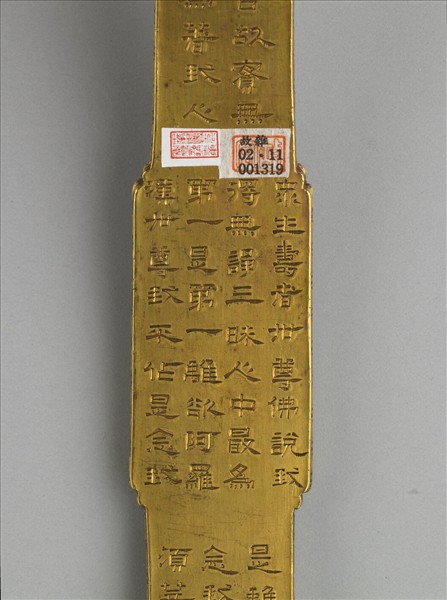 無
著我人
故雜
02・11
001319
衆生壽者世尊佛說我
得無諍三昧人中最為
第一是第一離欲阿羅
漢世尊我不作是念我
是離
念我
須菩